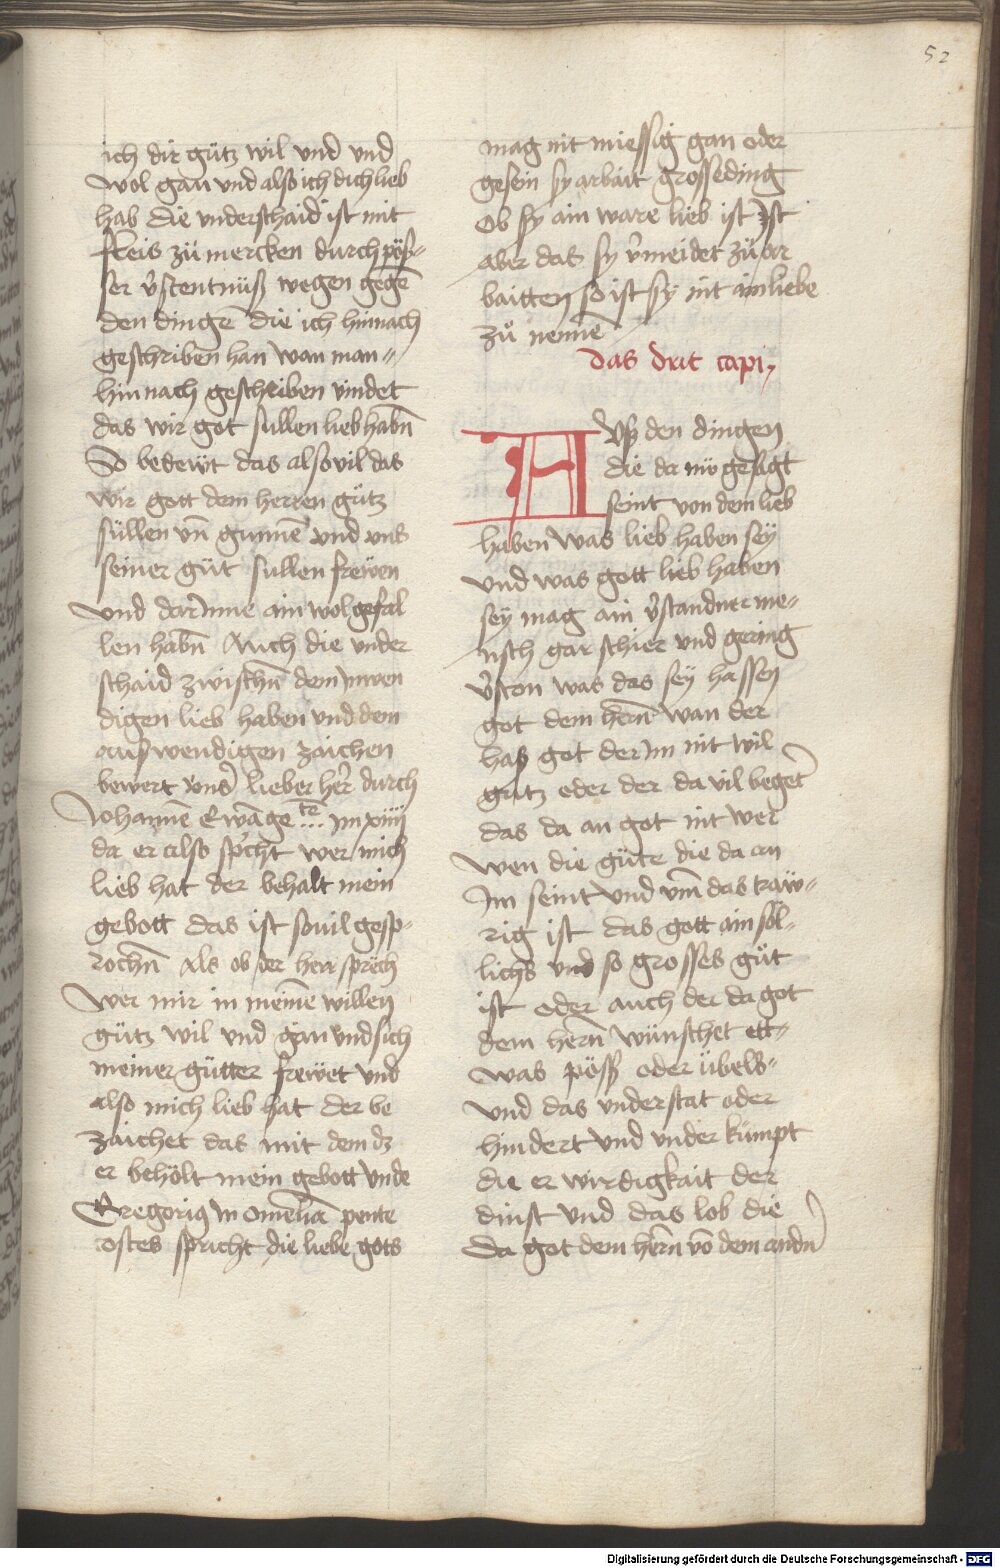 52
ich dir gütz wil vnd vnd
wol gan vnd also ich dich lieb
hab die vnderschaid ist mit
fleis zü mercken durch pös-
ser v̉stentnüß wegen gegē
den dingē die ich hinnach
geschriben han wan man〃
hinnach geschriben vindet
das wir got sullen lieb habn̄
So bedewt das also vil das
wir gott dem herren gütz
süllen vn̄ gunnē vnd vns
seiner güt sullen frewen
vnd dar Inne ain wolgefal
len habn̄ Auch die vnder
schaid zwischn̄ dem Inwen
digen lieb haben vnd dem
auswendigen zaichen
bewert vns̉ lieber her̉ durch
Johannē Ewāge ... im xiiij
da er also sp̉cht wer mich
lieb hat der behalt mein
gebott das ist souil gesp-
rochn̄ Als ob der herr sprech
Wer mir in meinē willen
gütz wil vnd gan vnd sich
meiner gütter frewet vnd
also mich lieb hat der be
zaichet das mit dem dz
er behölt mein gebott vnde
Gregoriꝯ In omēlia pente
costes spricht die liebe gots
mag nit miessig gan oder
gesein sy arbait grosse ding
Ob sy ain ware lieb ist Ist
aber das sy v̉meidet zü ar
baitten so ist sy nit ain liebe
zů nennē
das drit capi,
AVß den dingen
die da nw gesagt
seint von dem lieb
haben was lieb haben sey
vnd was gott lieb haben
sey mag ain v̉standner me〃
nsch gar schier vnd gering
v̉ston was das sey hassen
got dem hern̄ wan der
haß got der Im nit wil
gutz oder der da vil beger̉t
das da an got nit wer
wen die güte die da an
Im seint vnd vm̄ das traw〃
rig ist das gott ain söl-
lichs vnd so grosses gůt
ist oder auch der da got
dem hern̄ wünschet ett〃
was pöss oder übels〃
vnd das vnderstat oder
hindert vnd vnder kumpt
die er wirdigkait der
dinst vnd das lob die
da got dem hern̄ vō dem andn̉
Digitalisierung gefördert durch die Deutsche Forschungsgemeinschaft - DFG